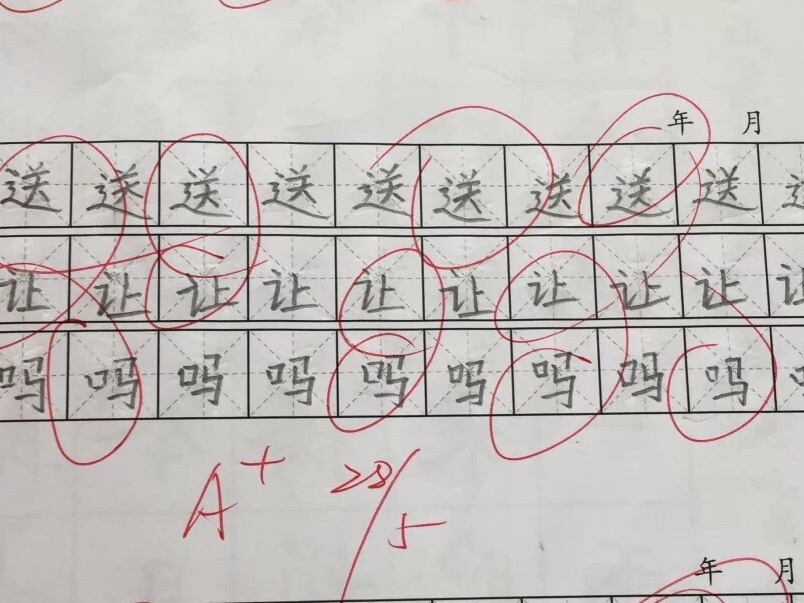 年 月
送 送 送 送 送 送 送 送 送
让 让 让 让 让 让 让 让 让 让
吗 吗 吗 吗 吗 吗 吗 吗 吗
A+ 28/5
年 月